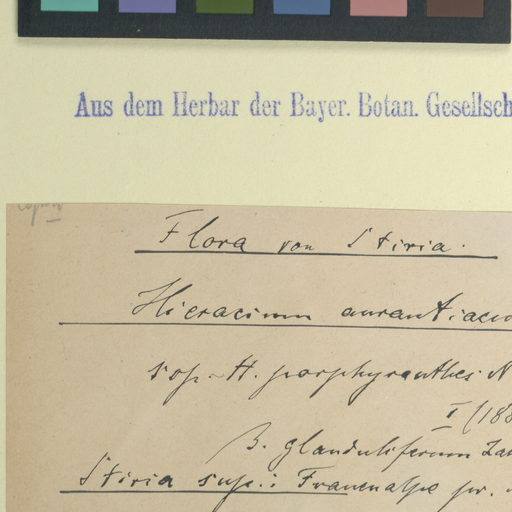 Aus dem Herbar der Bayer. Botan. Gesellsch
Flora von Stiria.
Hieracium aurantiacu
ssp. H. porphyranthes N
I (188
B. glanduliferum
Stiria sup.: Frauenalpe pr.